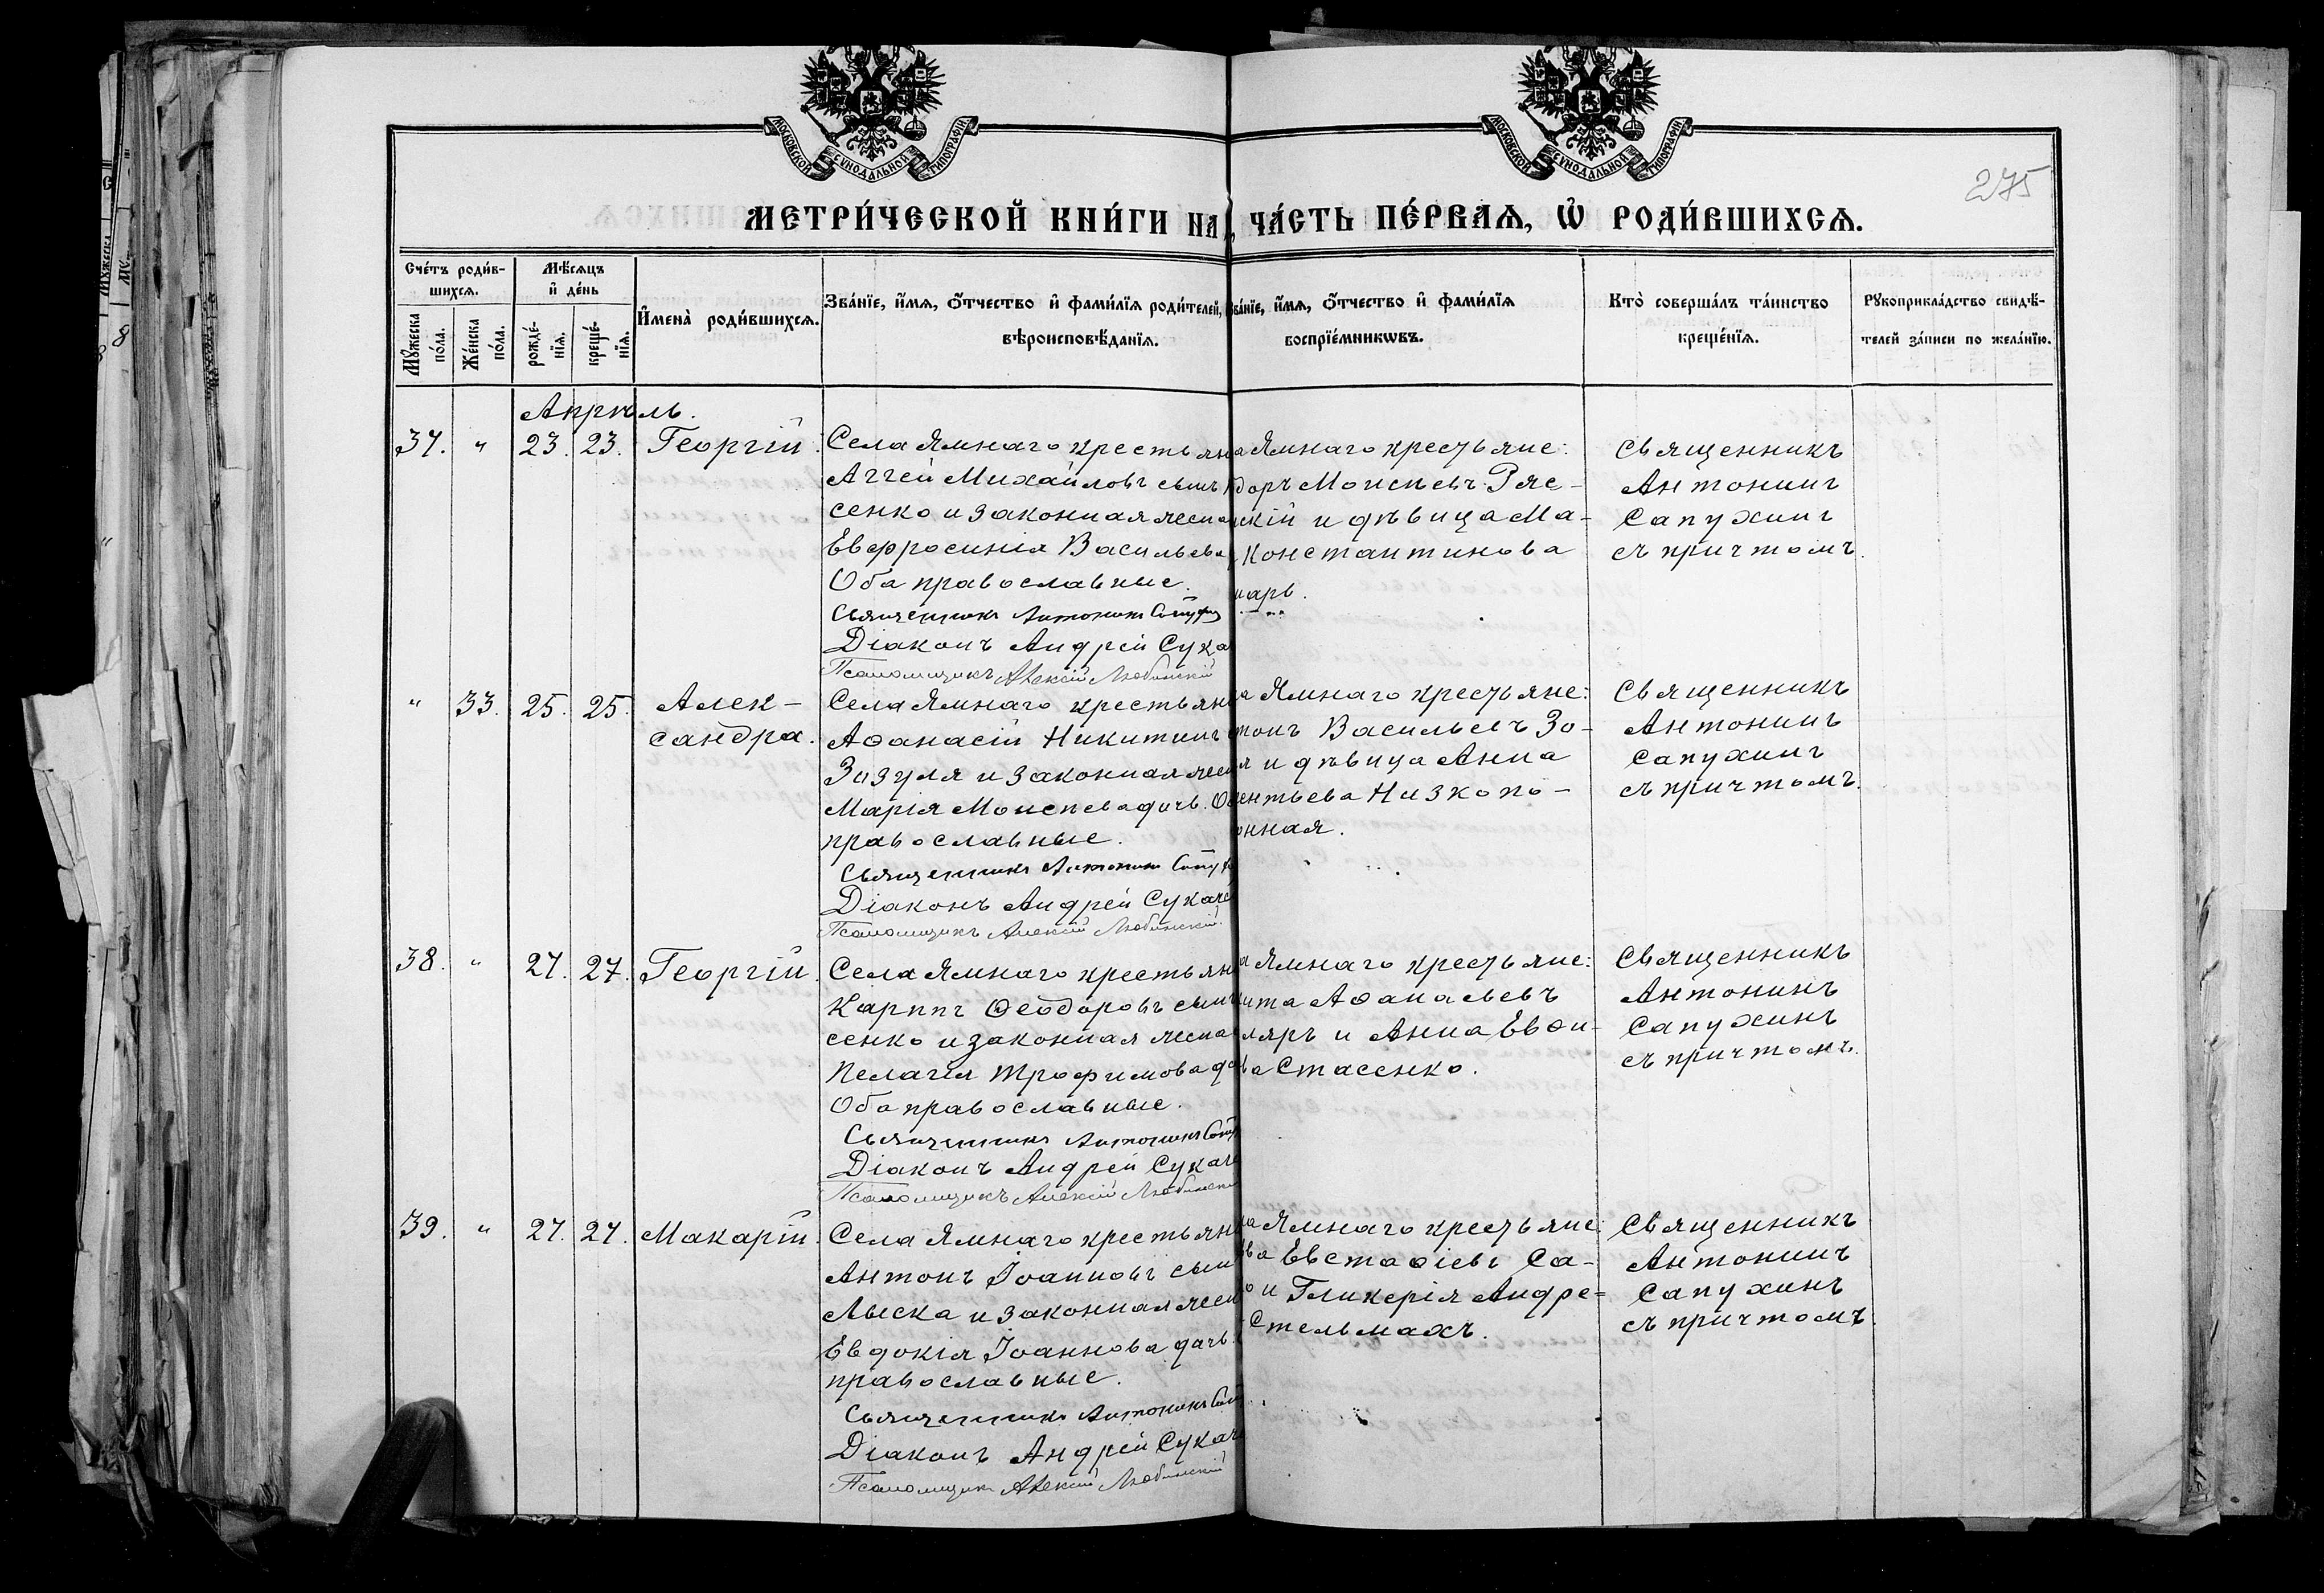 МОСКОВСКОЙ СѴНОДАЛЬНОЙ ТИПОГРАФІИ
МОСКОВСКОЙ СѴНОДАЛЬНОЙ ТИПОГРАФІИ
275
МЕТРИ́ЧЕСКОЙ КНИ́ГИ НА
ЧА́СТЬ ПЕ́РВАѦ, Ѡ҆ РОДИ́ВШИХСѦ.
Сче́тъ роди́в-
шихсѧ.
Мꙋ́жеска по́ла.
Же́нска по́ла.
Мѣ́сѧцъ
и҆ де́нь
рожде́-
нїѧ.
креще́-
нїѧ.
И҆мена̀ роди́вшихсѧ.
Зва́нїе, и҆́мѧ, ѻ҆́тчество и҆ фами́лїѧ роди́телей,
вѣроисповѣ́данїѧ.
ва́нїе, и҆́мѧ, ѻ҆́тчество и҆ фами́лїѧ
воспрїе́мникѡвъ.
Кто̀ соверша́лъ та́инство
креще́нїѧ.
Рꙋкоприкла́дство свидѣ́-
телей за́писи по жела́нїю.
Апрѣль.
37. " 23. 23. Георгій.
Села Ямнаго крестьян
Аггей Михайловъ сынъ
сенко и законная жена
Евфросинія Васильева
Оба православные.
Священникъ Антонинъ
Діаконъ Андрей Сука
Псаломщикъ Алексій Любинскій
а Ямнаго крестьяне:
доръ Моисеевъ Ряс-
скій и дѣвица Ма-
Константинова
нарь.
Священникъ
Антонинъ
Сапухинъ
съ причтомъ.
" 33. 25. 25. Алек-
сандра.
Села Ямнаго крестьян
Аѳанасій Никитинъ
Зозуля и законная жен
Марія Моисеева дочь. О
православные.
Священникъ Антонинъ Сапух
Діаконъ Андрей Сукаче
Псаломщикъ Алексій Любинскій
а Ямнаго крестьяне:
тонъ Васильевъ Зо-
я и дѣвица Анна
ентьева Низкопо-
онная.
Священникъ
Антонинъ
Сапухинъ
съ причтомъ.
38. " 27. 27. Георгій.
Села Ямнаго крестьян
Карпъ Ѳеодоровъ сынъ
сенко и законная жена
Пелагія Трофимова до
Оба православные.
Священникъ Антонинъ Сапух
Діаконъ Андрей Сукаче
Псаломщикъ Алексій Любински
а Ямнаго крестьяне:
кита Аѳанасьевъ
ляръ и Анна Евѳи-
ва Стасенко.
Священникъ
Антонинъ
Сапухинъ
съ причтомъ.
39. " 27. 27. Макарій.
Села Ямнаго крестьян
Антонъ Іоанновъ сын
Лыска и законная жен
Евдокія Іоаннова дочь.
православные.
Священникъ Антонинъ Сап
Діаконъ Андрей Сукаче
Псаломщикъ Алексій Любинскій
а Ямнаго крестьяне:
ва Евстаѳіевъ Са-
о и Гликерія Андре-
Стельмахъ.
Священникъ
Антонинъ
Сапухинъ
съ причтомъ.